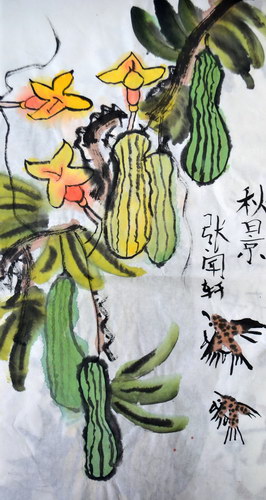 秋日景
张闻轩